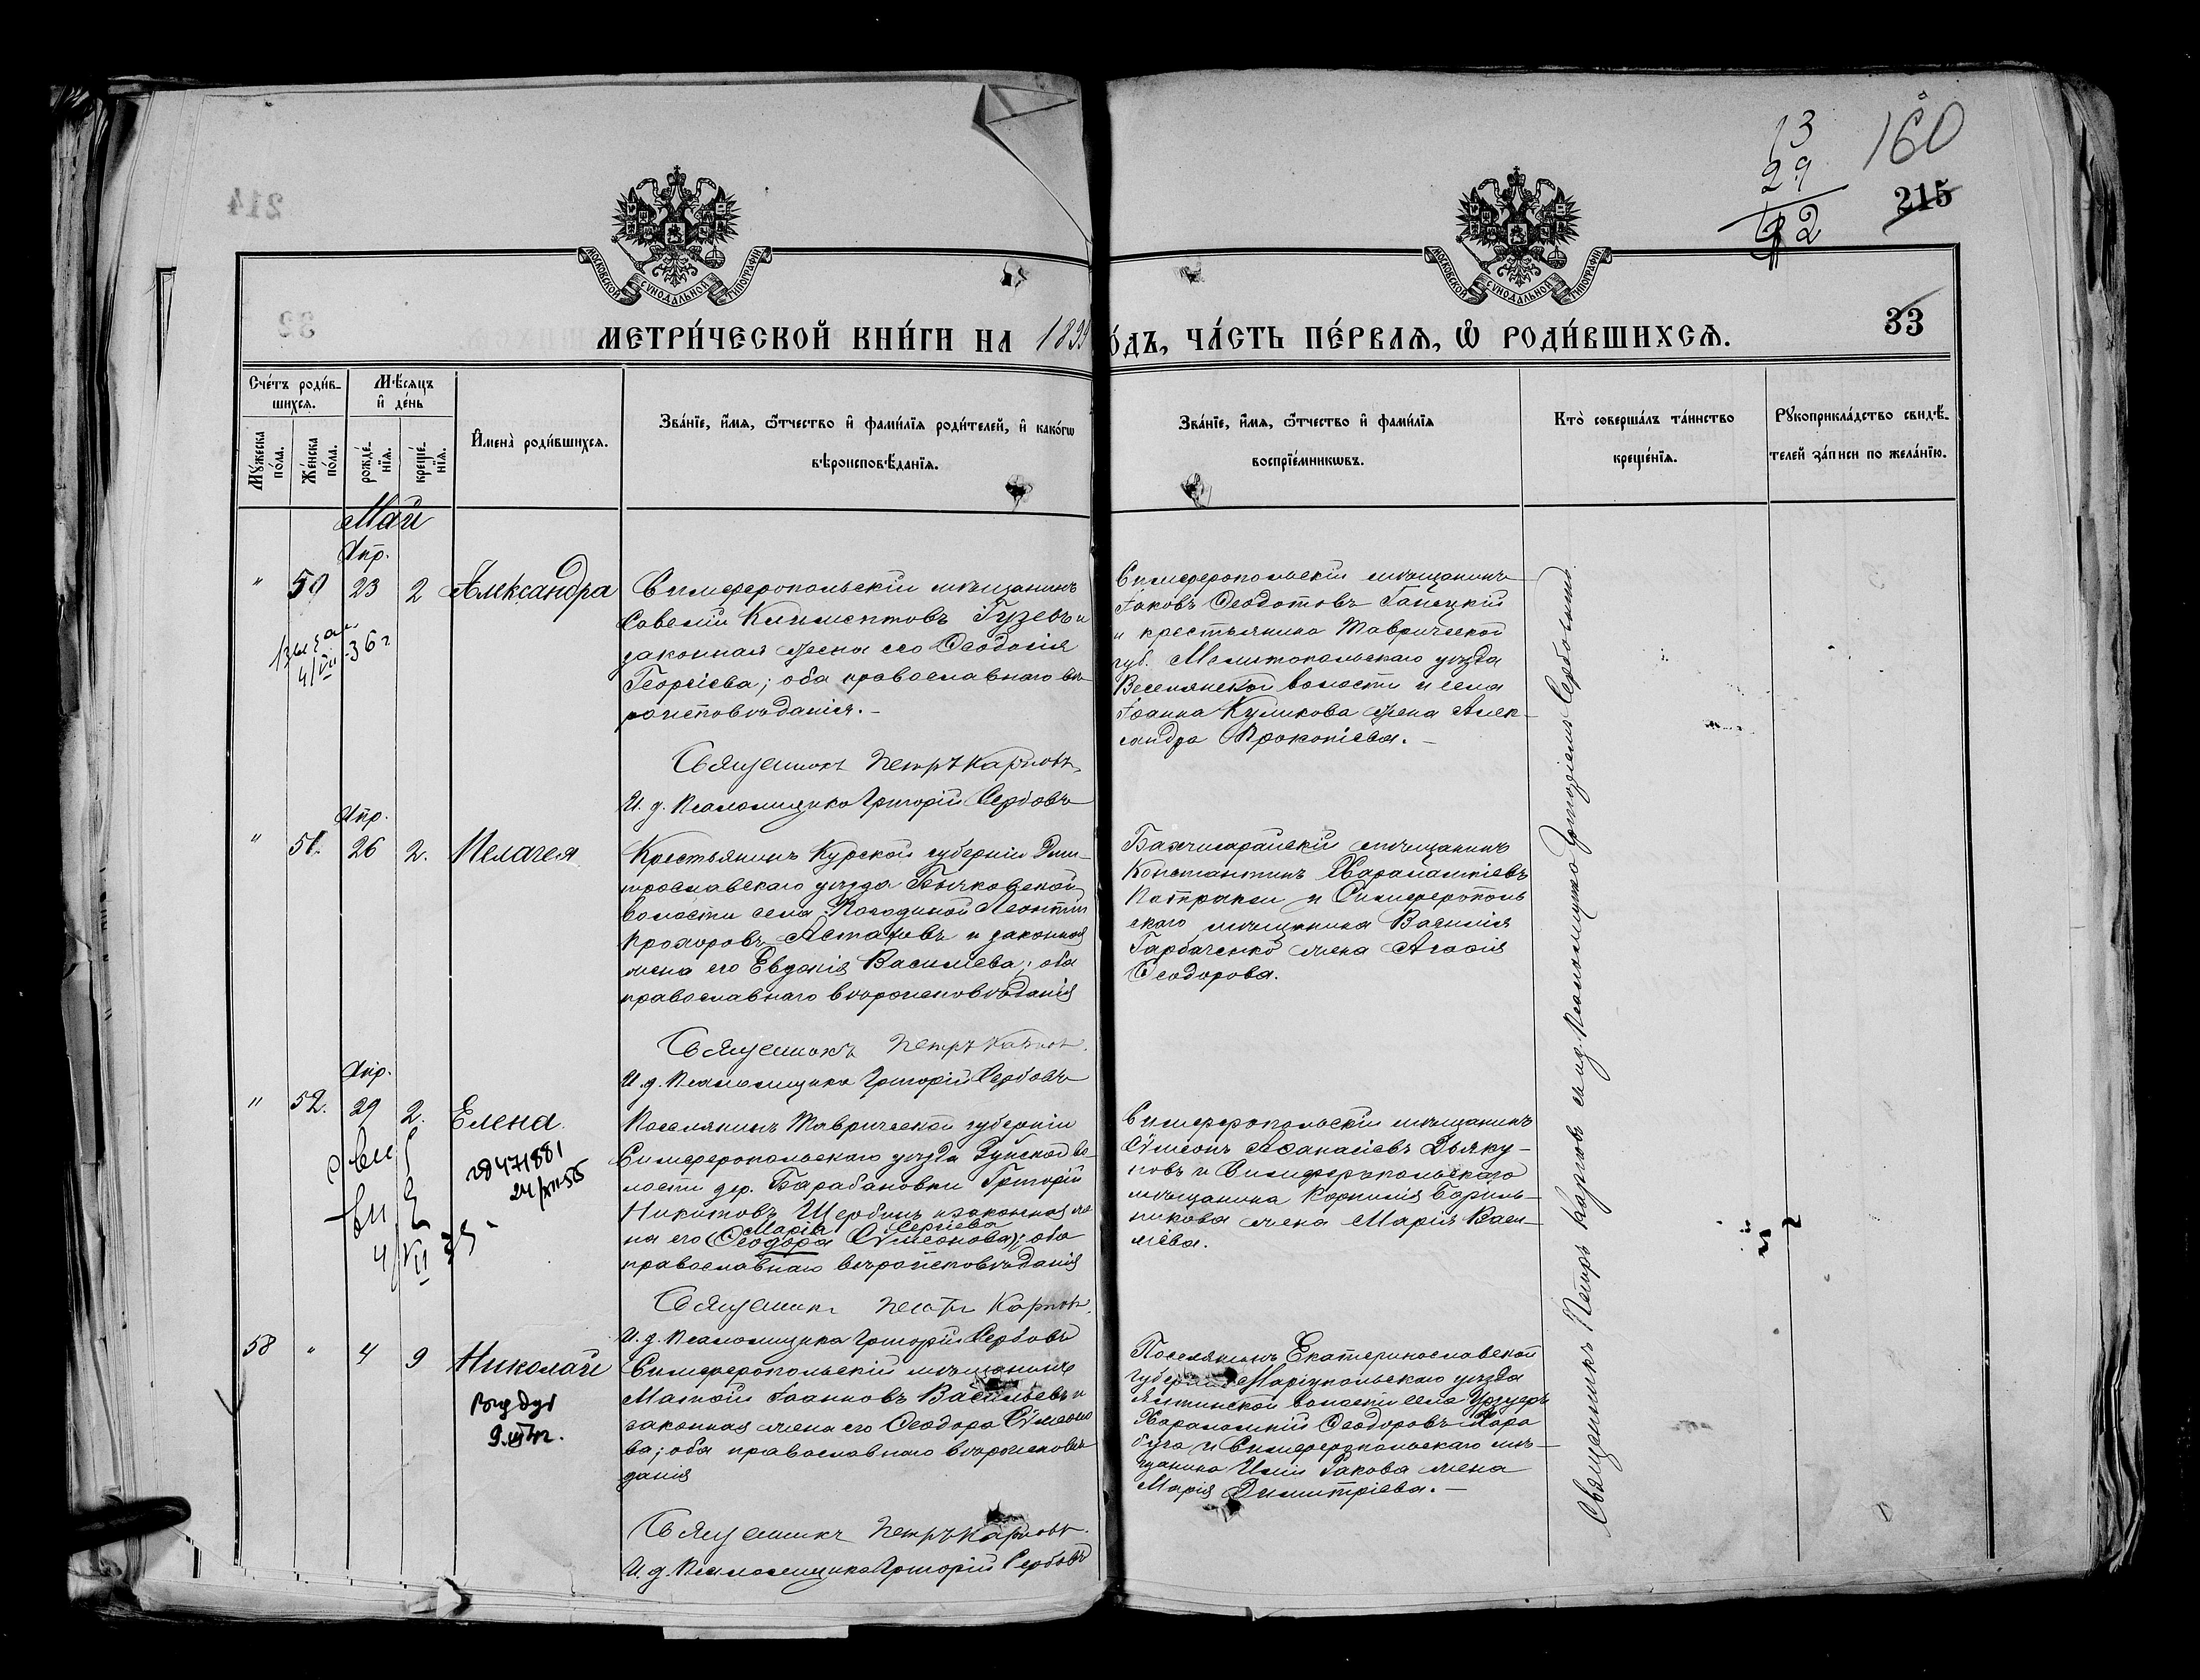 13
29
160
215
214
МОСКОВСКОЙ СѴНОДАЛЬНОЙ ТИПОГРАФІИ
МОСКОВСКОЙ СѴНОДАЛЬНОЙ ТИПОГРАФІИ
32
МЕТРИ́ЧЕСКОЙ КНИ́ГИ НА 1899
О́ДЪ, ЧА́СТЬ ПЕ́РВАѦ, Ѽ РОДИ́ВШИХСѦ.
33
Сче́тъ роди́в-
шихсѧ.
Мѣ́сѧцъ
и҆ де́нь
Мꙋ́жеска по́ла.
Же́нска по́ла.
рожде́-нїѧ.
креще́-нїѧ.
И҆мена̀ роди́вшихсѧ.
Зва́нїе, и҆́мѧ, ѻ҆́тчество и҆ фами́лїѧ роди́телей, и҆ како́гѡ
вѣроисповѣ́данїѧ.
Зва́нїе, и҆́мѧ, ѻ҆́тчество и҆ фами́лїѧ
воспрїе́мникѡвъ.
Кто̀ соверша́лъ та́инство
креще́нїѧ.
Рꙋкоприкла́дство свидѣ́-
телей за́писи по жела́нїю.
Май
Апр.
" 50 23 2 Александра
Симферопольскій мѣщанинъ
Савелій Климентовъ Гузевъ и
законная жена его Ѳеодосія
Георгіева; оба православнаго вѣ-
роисповѣданія.-
Священникъ Петръ Карповъ
И. д. Псаломщика Григорій Сербовъ
Симферопольскій мѣщанинъ
Іаковъ Ѳеодотовъ
и крестьянина Таврической
губ. Мелитопольскаго уѣзда
Веселянской волости и села
Іоанна Куликова жена Алек-
сандра Прокопіева.-
36 г
Апр.
" 51. 26 2. Пелагея
Крестьянинъ Курской губерніи Дми-
тровскаго уѣзда
волости села Леонтій
Прохоровъ Астаховъ и законная
жена его Евдокія Василіева; оба
православнаго вѣроисповѣданія
Священникъ Петръ Карповъ
И. д. Псаломщика Григорій Сербовъ
Бахчисарайскій мѣщанинъ
Константинъ Харалампіевъ
и Симферополь
скаго мѣщанина Василія
Гарбаченко жена Агафія
Ѳеодорова.
Апр.
" 52. 29 2. Елена.
471881
24/XII-55
Поселянинъ Таврической губерніи
Симферопольскаго уѣзда Зуйской во-
лости дер. Барабановки Григорій
Никитовъ Щербинъ и законная же
Марія Сергіева
на его (Ѳеодора Сѵмеонова); оба
православнаго вѣроисповѣданія
Священникъ Петръ Карповъ
И. д. Псаломщика Григорій Сербовъ
Симферопольскій мѣщанинъ
Сѵмеонъ Аѳанасіевъ Дьяку-
новъ и Симферопольскаго
мѣщанина Корнилія Бориль-
никова жена Марія Васи-
ліева.
58 " 4 9 Николай
Симферопольскій мѣщанинъ
Матѳей Іоанновъ Васильевъ и
законная жена его Ѳеодора Сѵмеоно
ва; оба православнаго вѣроисповѣ-
данія
Священникъ Петръ Карповъ
И. д. Псаломщика Григорій Сербовъ
Поселянинъ Екатеринославской
губерніи Маріупольскаго уѣзда
Ялтинской волости села Урзуфъ
Харалампій Ѳеодоровъ Кара
буга и Симферопольскаго мѣ-
щанина Иліи Ракова жена
Марія Димитріева.-
Священникъ Петръ Карповъ съ и. д. Псаломщика Григоріемъ Сербовымъ